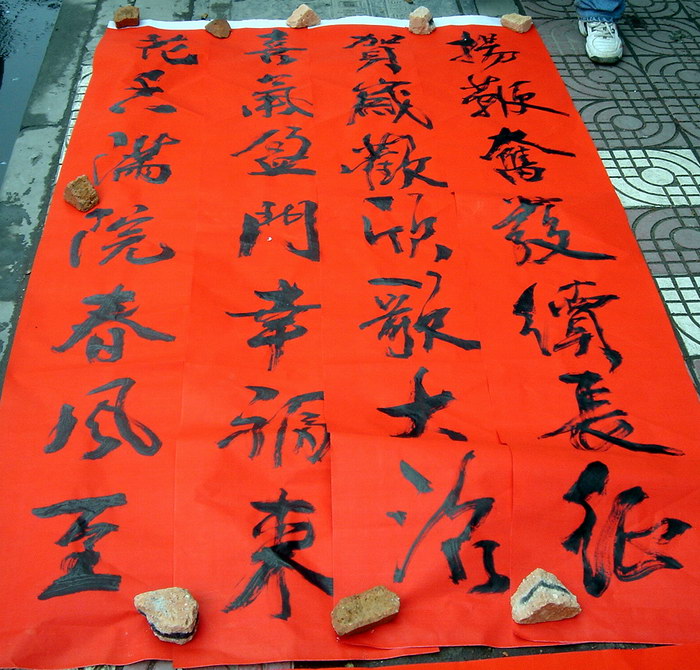 揚鞭奮發續長征
賀歲歡欣歌大治
喜氣盈門幸福來
花香滿院春風至